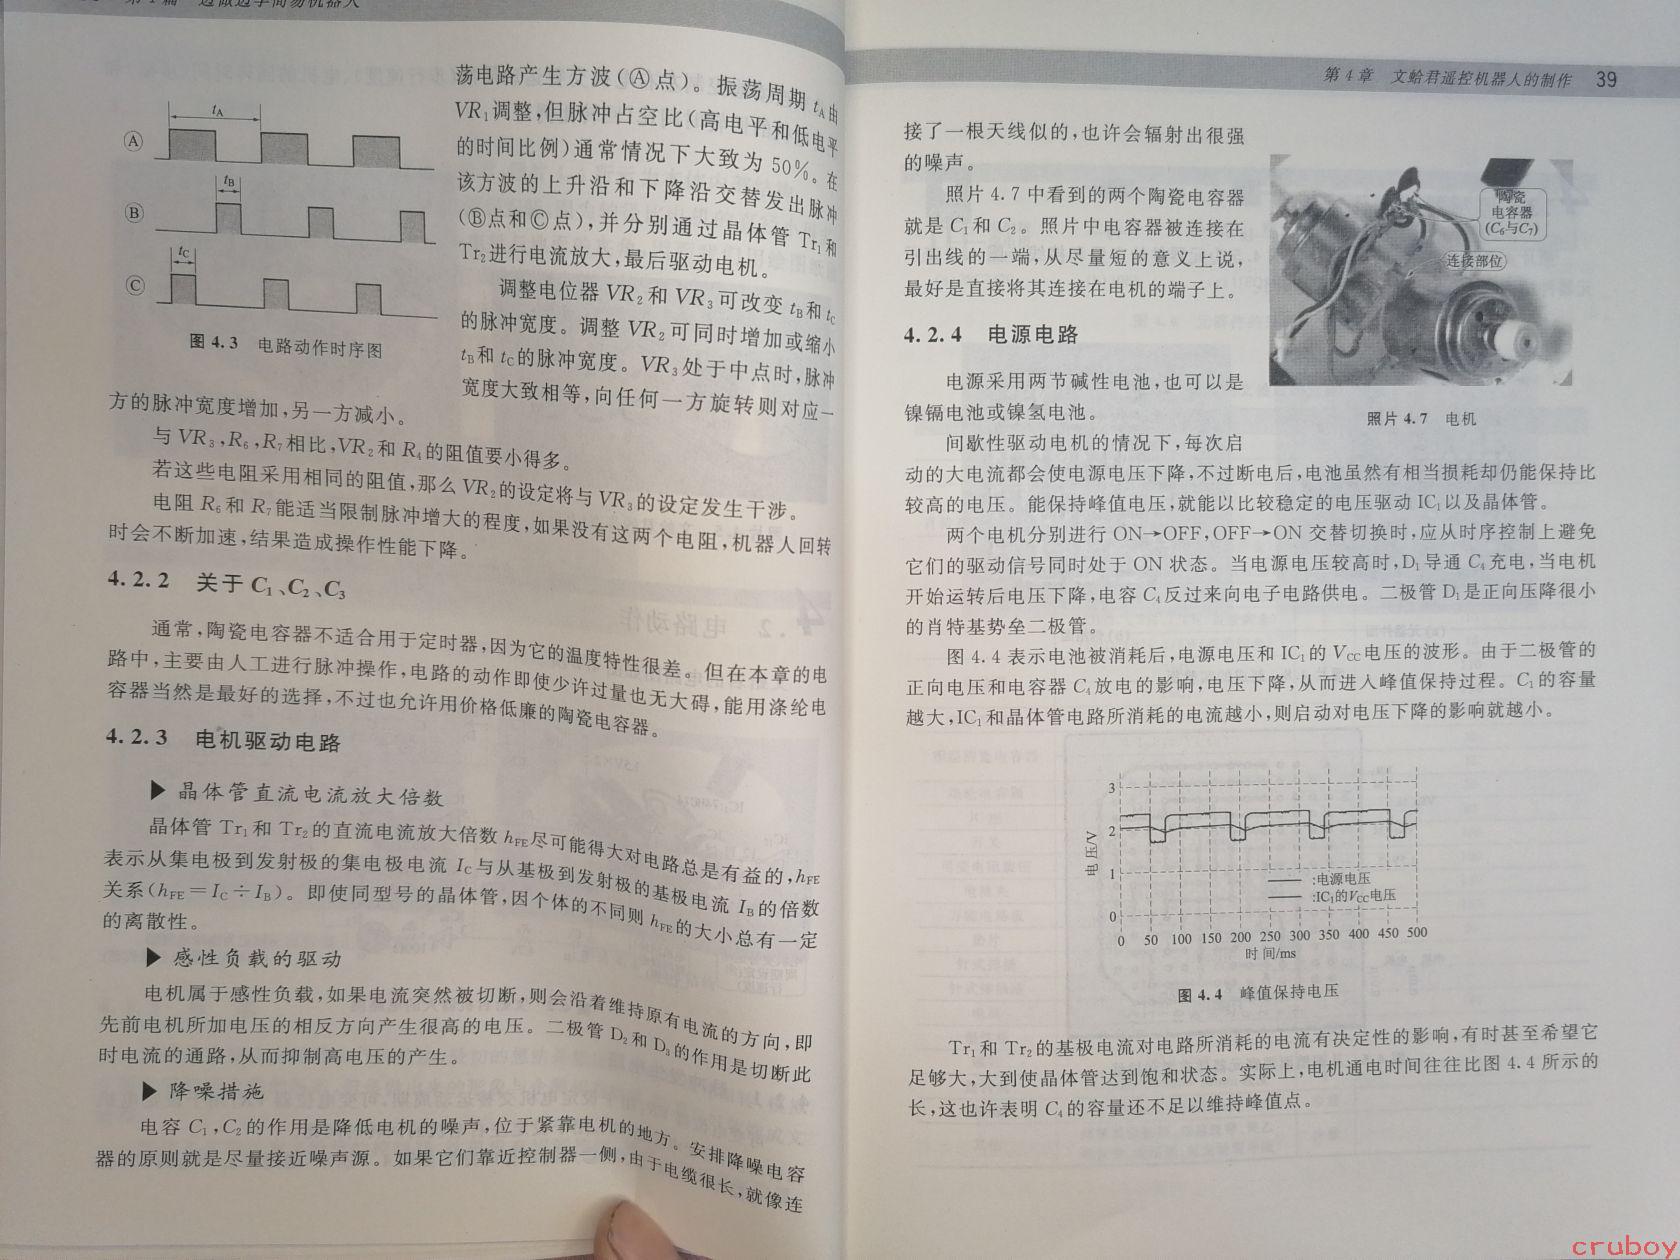 第 1 篇 边做边学简易机器人
tA
Ⓐ
tB
Ⓑ
tC
Ⓒ
图 4.3 电路动作时序图
荡电路产生方波(Ⓐ点)。振荡周期 tA由
VR₁调整,但脉冲占空比(高电平和低电平
的时间比例)通常情况下大致为 50%。在
该方波的上升沿和下降沿交替发出脉冲
(Ⓑ点和Ⓒ点),并分别通过晶体管 Tr₁和
Tr₂进行电流放大,最后驱动电机。
调整电位器 VR₂和 VR₃可改变 tB和 tC
的脉冲宽度。调整 VR₂可同时增加或缩小
tB和 tC的脉冲宽度。VR₃处于中点时,脉冲
宽度大致相等,向任何一方旋转则对应一
方的脉冲宽度增加,另一方减小。
与 VR₃,R₆,R₇相比,VR₂和 R₄的阻值要小得多。
若这些电阻采用相同的阻值,那么 VR₂的设定将与 VR₃的设定发生干涉。
电阻 R₆和 R₇能适当限制脉冲增大的程度,如果没有这两个电阻,机器人回转
时会不断加速,结果造成操作性能下降。
4.2.2 关于 C₁、C₂、C₃
通常,陶瓷电容器不适合用于定时器,因为它的温度特性很差。但在本章的电
路中,主要由人工进行脉冲操作,电路的动作即使少许过量也无大碍,能用涤纶电
容器当然是最好的选择,不过也允许用价格低廉的陶瓷电容器。
4.2.3 电机驱动电路
▶ 晶体管直流电流放大倍数
晶体管 Tr₁和 Tr₂的直流电流放大倍数 hFE尽可能得大对电路总是有益的,hFE
表示从集电极到发射极的集电极电流 IC与从基极到发射极的基极电流 IB的倍数
关系(hFE＝IC÷IB)。即使同型号的晶体管,因个体的不同则 hFE的大小总有一定
的离散性。
▶ 感性负载的驱动
电机属于感性负载,如果电流突然被切断,则会沿着维持原有电流的方向,即
先前电机所加电压的相反方向产生很高的电压。二极管 D₂和 D₃的作用是切断此
时电流的通路,从而抑制高电压的产生。
▶ 降噪措施
电容 C₁,C₂的作用是降低电机的噪声,位于紧靠电机的地方。安排降噪电容
器的原则就是尽量接近噪声源。如果它们靠近控制器一侧,由于电缆很长,就像连
第 4 章 文蛤君遥控机器人的制作 39
接了一根天线似的,也许会辐射出很强
的噪声。
照片 4.7 中看到的两个陶瓷电容器
就是 C₁和 C₂。照片中电容器被连接在
引出线的一端,从尽量短的意义上说,
最好是直接将其连接在电机的端子上。
陶瓷
电容器
(C₆与C₇)
连接部位
照片 4.7 电机
4.2.4 电源电路
电源采用两节碱性电池,也可以是
镍镉电池或镍氢电池。
间歇性驱动电机的情况下,每次启
动的大电流都会使电源电压下降,不过断电后,电池虽然有相当损耗却仍能保持比
较高的电压。能保持峰值电压,就能以比较稳定的电压驱动 IC₁以及晶体管。
两个电机分别进行 ON→OFF,OFF→ON 交替切换时,应从时序控制上避免
它们的驱动信号同时处于 ON 状态。当电源电压较高时,D₁导通 C₄充电,当电机
开始运转后电压下降,电容 C₄反过来向电子电路供电。二极管 D₁是正向压降很小
的肖特基势垒二极管。
图 4.4 表示电池被消耗后,电源电压和 IC₁的 VCC电压的波形。由于二极管的
正向电压和电容器 C₄放电的影响,电压下降,从而进入峰值保持过程。C₁的容量
越大,IC₁和晶体管电路所消耗的电流越小,则启动对电压下降的影响就越小。
3
2
1
0
电压/V
:电源电压
:IC₁的VCC电压
0 50 100 150 200 250 300 350 400 450 500
时间/ms
图 4.4 峰值保持电压
Tr₁和 Tr₂的基极电流对电路所消耗的电流有决定性的影响,有时甚至希望它
足够大,大到使晶体管达到饱和状态。实际上,电机通电时间往往比图 4.4 所示的
长,这也许表明 C₄的容量还不足以维持峰值点。
cruboy